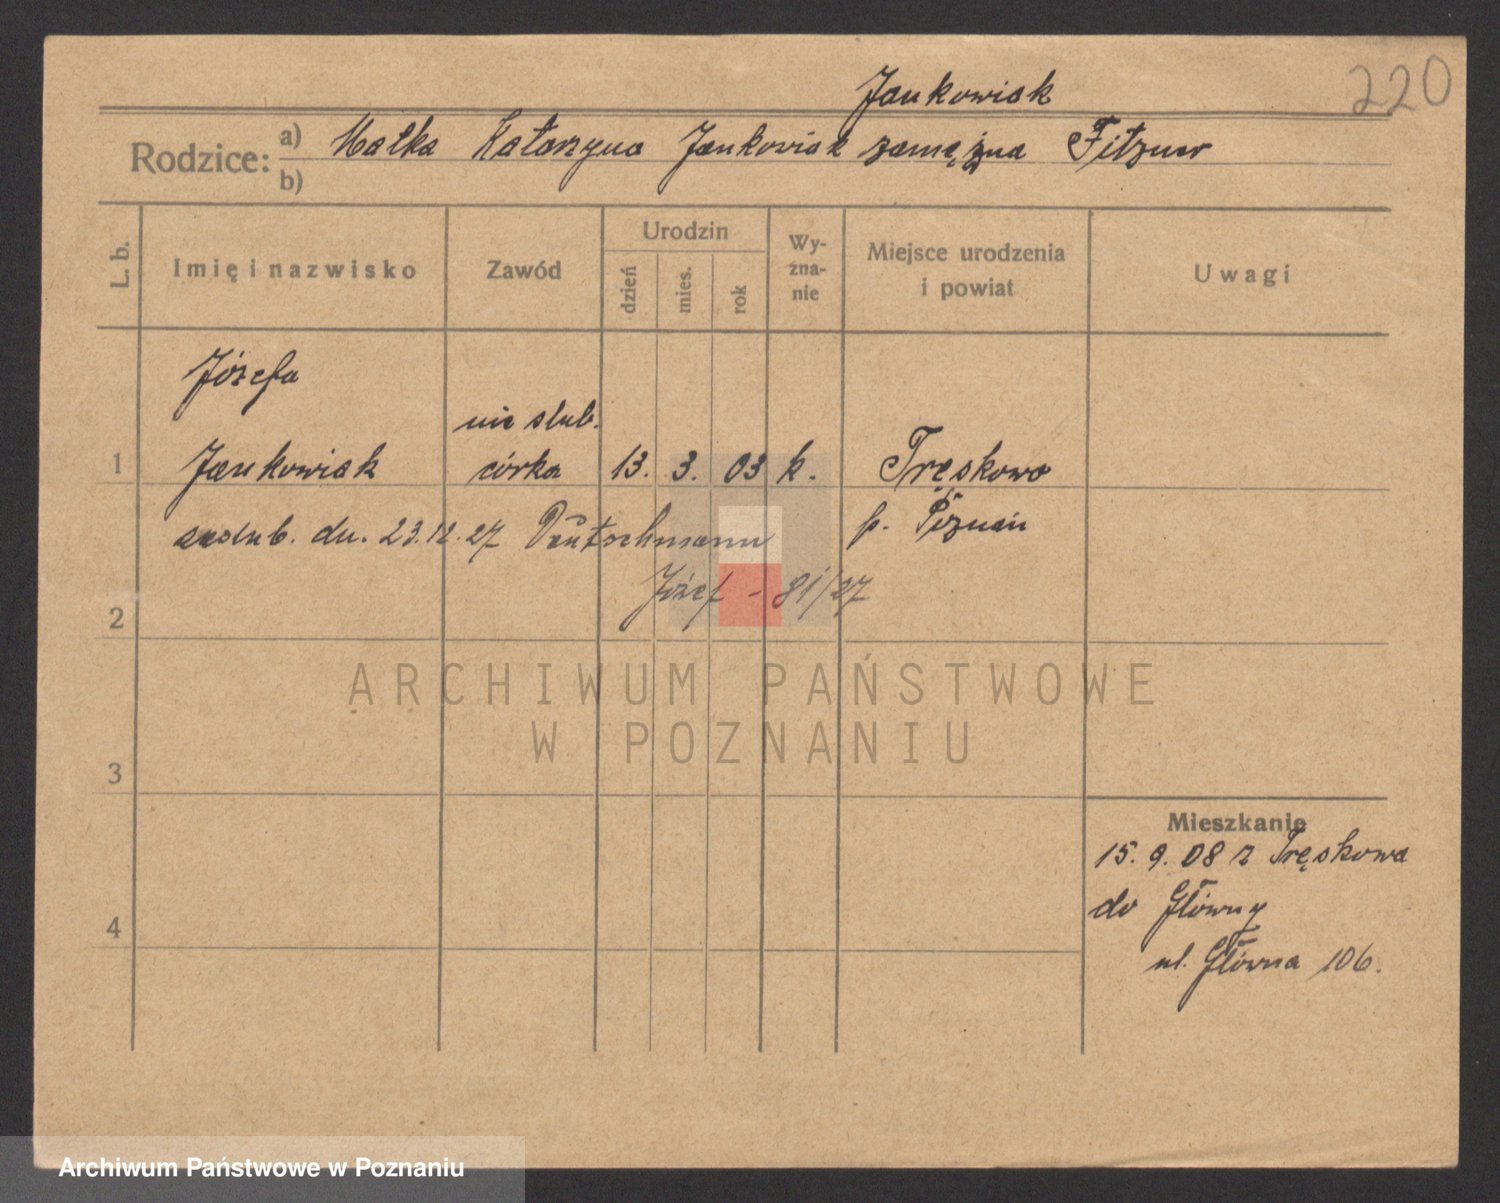 220
Jankowiak
Rodzice: a) Matka Katarzyna Jankowiak zamężna Fitzner
b)
L. b.
Imię i nazwisko
Zawód
Urodzin
dzień
mies.
rok
Wy-
zna-
nie
Miejsce urodzenia
i powiat
Uwagi
Józefa
nie ślub.
1 Jankowiak córka 13. 3. 03 k. Tręskowo
zaślub. dn. 23.12.27 Deutschmann p. Poznań
Józef - 81/27
2
ARCHIWUM PAŃSTWOWE
W POZNANIU
3
Mieszkanie
15. 9. 08 z Tręskowa
do Główny
4
ul. Główna 106.
Archiwum Państwowe w Poznaniu